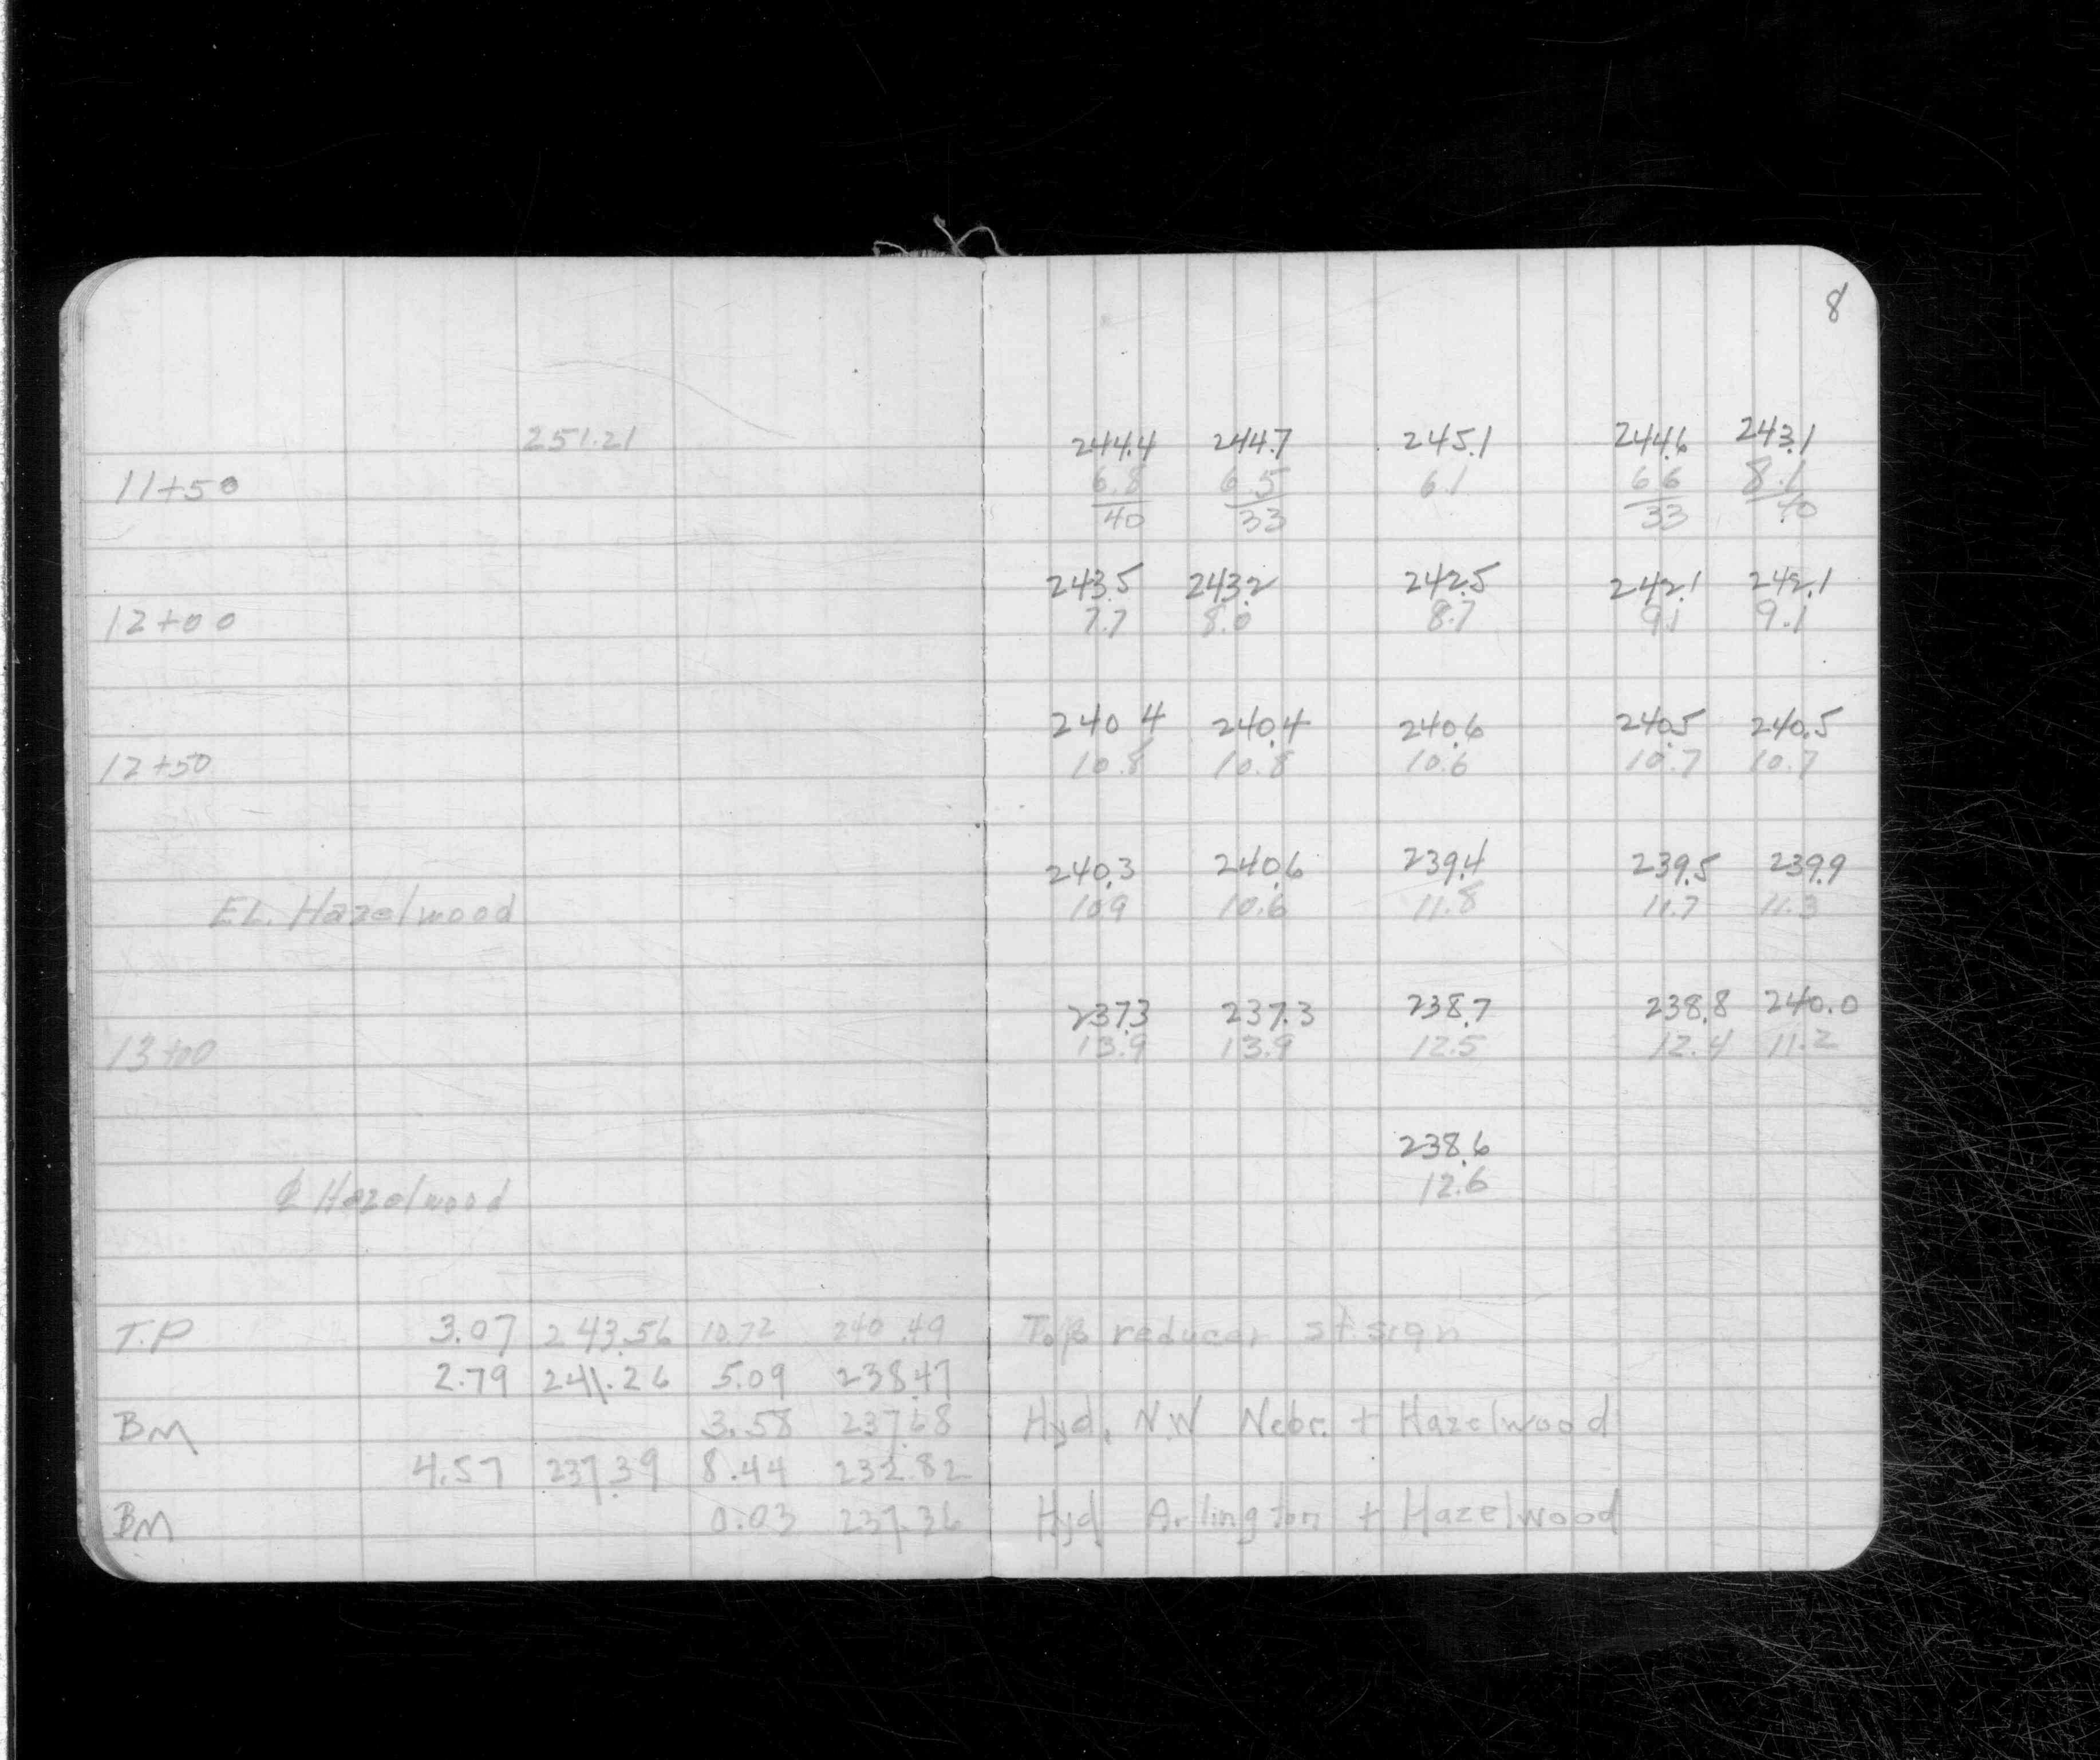 8
251.21 244.4 244.7 245.1 244.6 243.1
11+50 6.8 6.5 6.1 6.6 8.1
40 33 33 40
243.5 243.2 242.5 242.1 242.1
12+00 7.7 8.0 8.7 9.1 9.1
240 4 240.4 240.6 240.5 240.5
12+50 10.8 10.8 10.6 10.7 10.7
240.3 240.6 239.4 239.5 239.9
EL. Hazelwood 10.9 10.6 11.8 11.7 11.3
237.3 237.3 238.7 238.8 240.0
13+00 13.9 13.9 12.5 12.4 11.2
238.6
℄ Hazelwood 12.6
T.P 3.07 243.56 10.72 240.49 Top reducer st. sign
2.79 241.26 5.09 238.47
BM 3.58 237.68 Hyd. N.W Nebr. + Hazelwood
4.57 237.39 8.44 232.82
BM 0.03 237.36 Hyd Arlington + Hazelwood